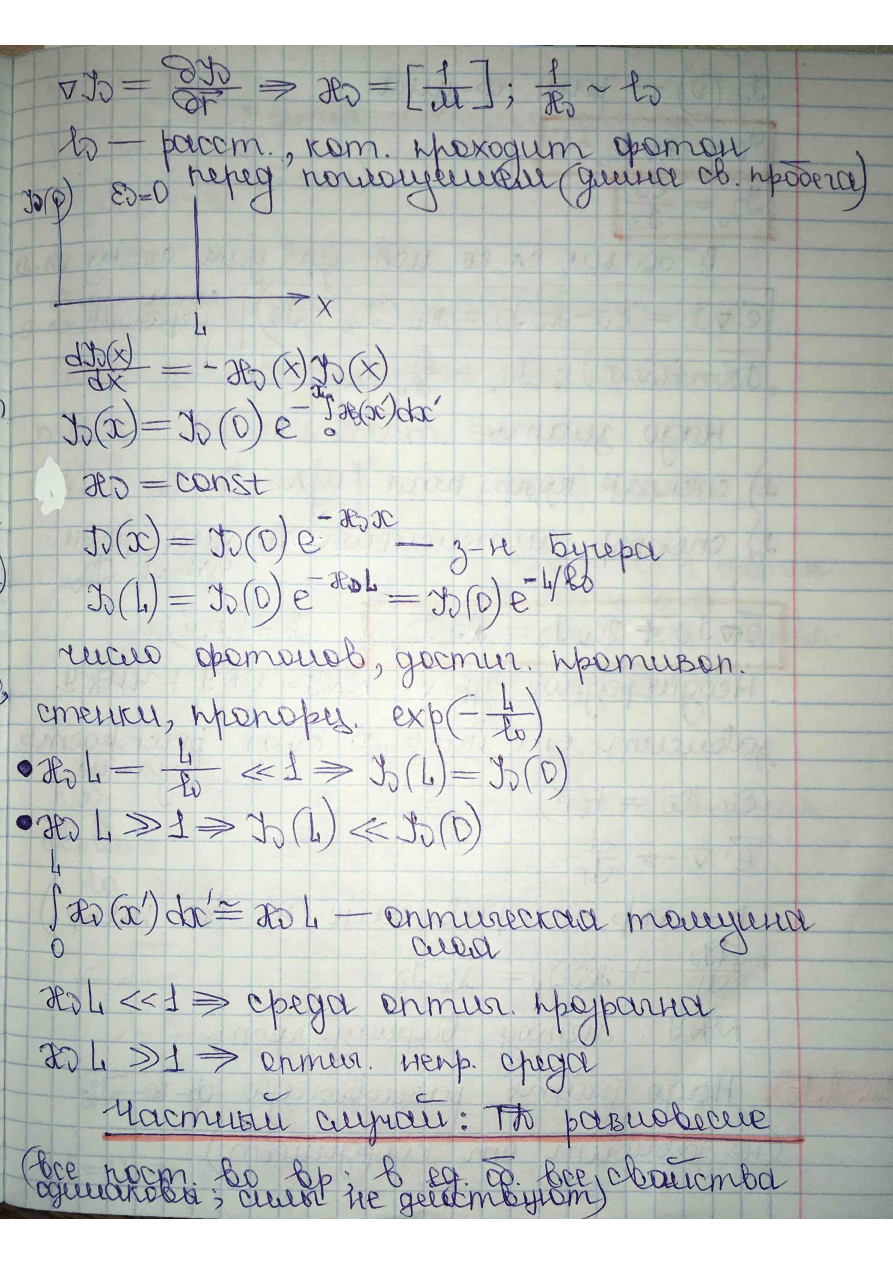 ∇I𝜈 = ∂I𝜈/∂r ⇒ ϰ𝜈 = [1/м]; 1/ϰ𝜈 ~ l𝜈
l𝜈 — расст., кот. проходит фотон
перед поглощением (длина св. пробега)
I𝜈(0) ε𝜈=0
x
L
dI𝜈(x)/dx = -ϰ𝜈(x)I𝜈(x)
I𝜈(x) = I𝜈(0) e^{-∫₀ˣ ϰ𝜈(x')dx'}
ϰ𝜈 = const
I𝜈(x) = I𝜈(0) e^{-ϰ𝜈x} — з-н Бугера
I𝜈(L) = I𝜈(0) e^{-ϰ𝜈L} = I𝜈(0) e^{-L/l𝜈}
число фотонов, достиг. противоп.
стенки, пропорц. exp(-L/l𝜈)
• ϰ𝜈L = L/l𝜈 ≪ 1 ⇒ I𝜈(L) = I𝜈(0)
• ϰ𝜈L ≫ 1 ⇒ I𝜈(L) ≪ I𝜈(0)
∫₀ᴸ ϰ𝜈(x')dx' ≅ ϰ𝜈L — оптическая толщина
слоя
ϰ𝜈L ≪ 1 ⇒ среда оптич. прозрачна
ϰ𝜈L ≫ 1 ⇒ оптич. непр. среда
Частный случай: ТД равновесие
(все пост. во вр; в ед. об. все свойства
одинаковы; силы не действуют)